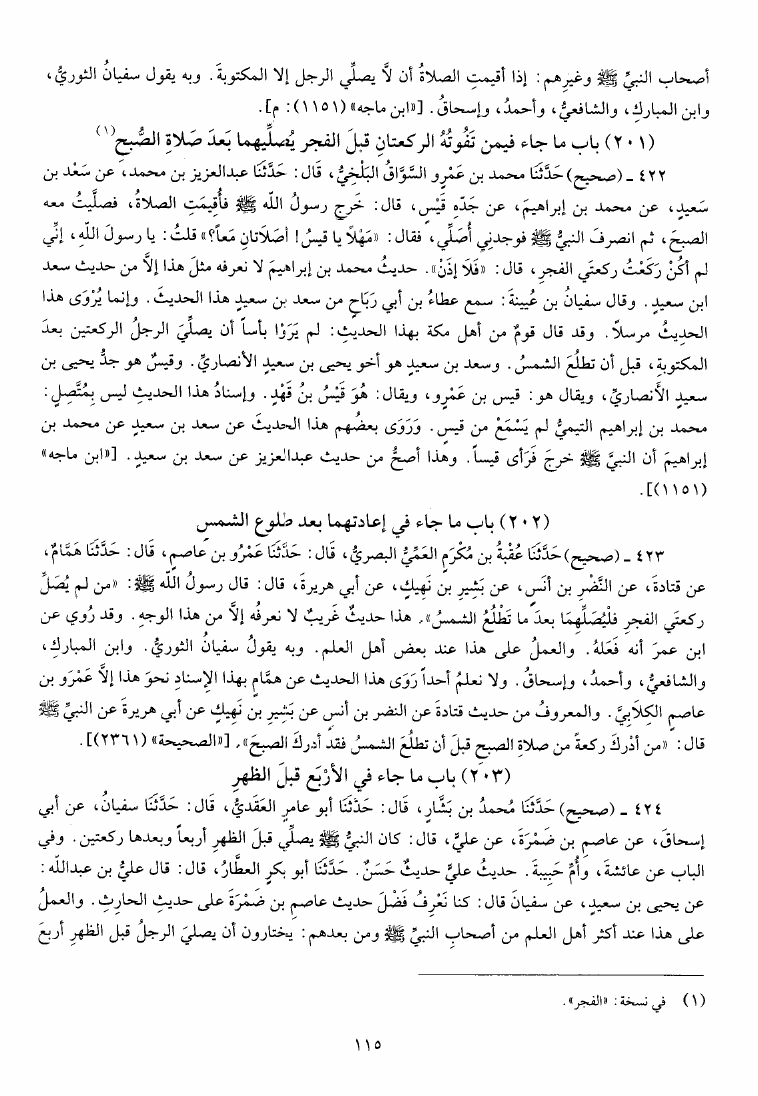 أصحاب النبيِّ ﷺ وغيرِهم: إذا أقيمتِ الصلاةُ أن لاَّ يصلِّي الرجل إلا المكتوبةَ. وبه يقول سفيانُ الثوريُّ،
وابن المباركِ، والشافعيُّ، وأحمدُ، وإسحاقُ. [«ابن ماجه» (١١٥١): م].
(٢٠١) باب ما جاء فيمن تَفُوتُهُ الركعتانِ قبلَ الفجر يُصَلِّيهما بَعدَ صَلاةِ الصُّبحِ(١)
٤٢٢ ـ (صحيح) حَدَّثَنَا محمد بن عَمْرٍو السَّوَّاقُ البَلْخِيُّ، قَالَ: حَدَّثَنَا عبدالعزيز بن محمد، عن سَعْد بن
سَعيدٍ، عن محمد بن إبراهيمَ، عن جَدِّه قَيْسٍ، قال: خَرج رسولُ الله ﷺ فأُقِيمَتِ الصلاةُ، فصلَّيتُ معه
الصبحَ، ثم انصرفَ النبيُّ ﷺ فوجدنِي أُصَلِّي، فقال: «مَهْلًا يا قيسُ! أصَلاَتانِ مَعاً؟» قلتُ: يا رسولَ اللهِ، إنِّي
لم أكُنْ رَكَعْتُ ركعتَي الفجرِ، قال: «فَلَا إذَنْ». حديثُ محمد بن إبراهيمَ لا نعرفه مثلَ هذا إلاَّ من حديث سعد
ابن سعيدٍ. وقال سفيانُ بن عُيينةَ: سمع عطاءُ بن أبي رَبَاحٍ من سعد بن سعيدٍ هذا الحديثَ. وإنما يُرْوَى هذا
الحديثُ مرسلاً. وقد قال قومٌ من أهل مكة بهذا الحديثِ: لم يَرَوْا بأساً أن يصلِّيَ الرجلُ الركعتين بعدَ
المكتوبةِ، قبل أن تطلُعَ الشمسُ. وسعد بن سعيدٍ هو أخو يحيى بن سعيدٍ الأنصاريِّ. وقيسٌ هو جدُّ يحيى بن
سعيدٍ الأَنصاريِّ، ويقال هو: قيس بن عَمْرٍو، ويقال: هُوَ قَيْسُ بنُ قَهْدٍ. وإسنادُ هذا الحديثِ ليس بِمُتَّصِلٍ:
محمد بن إبراهيم التيميُّ لم يَسْمَعْ من قيسٍ. وَرَوَى بعضُهم هذا الحديثَ عن سعد بن سعيدٍ عن محمد بن
إبراهيمَ أن النبيَّ ﷺ خرجَ فَرَأى قيساً. وهذا أصحُّ من حديث عبدالعزيز عن سعد بن سعيدٍ. [«ابن ماجه»
(١١٥١)].
(٢٠٢) باب ما جاء في إعادتهما بعد طلوع الشمسِ
٤٢٣ ـ (صحيح) حَدَّثَنَا عُقْبةُ بن مُكْرَمٍ العَمِّيُّ البصريُّ، قَالَ: حَدَّثَنَا عَمْرُو بن عاصمٍ، قَالَ: حَدَّثَنَا هَمَّامٌ،
عن قتادةَ، عن النَّضْرِ بن أنَسٍ، عن بَشِيرِ بن نَهِيكٍ، عن أبي هريرةَ، قال: قال رسولُ الله ﷺ: «من لم يُصَلِّ
ركعتَي الفجرِ فلْيُصَلِّهِمَا بعدَ ما تَطْلُعُ الشمسُ». هذا حديثٌ غَريبٌ لا نعرفُه إلاَّ من هذا الوجهِ. وقد رُوي عن
ابن عمرَ أنه فَعَلَهُ. والعملُ على هذا عند بعض أهل العلم. وبه يقولُ سفيانُ الثوريُّ. وابن المباركِ،
والشافعيُّ، وأحمدُ، وإسحاقُ. ولا نعلمُ أحداً رَوَى هذا الحديث عن همَّامٍ بهذا الإسنادِ نحوَ هذا إلاَّ عَمْرَو بن
عاصمٍ الكِلاَبِيَّ. والمعروفُ من حديث قتادةَ عن النضر بن أنسٍ عن بَشِيرِ بن نَهِيكٍ عن أبي هريرةَ عن النبيِّ ﷺ
قال: «من أدْركَ ركعةً من صلاةِ الصبح قبلَ أن تطلُعَ الشمسُ فقد أدركَ الصبحَ». [«الصحيحة» (٢٣٦١)].
(٢٠٣) باب ما جاء في الأرْبَعِ قبلَ الظهرِ
٤٢٤ ـ (صحيح) حَدَّثَنَا مُحمدُ بن بَشَّارٍ، قَالَ: حَدَّثَنَا أبو عامرٍ العَقَدِيُّ، قَالَ: حَدَّثَنَا سفيانُ، عن أبي
إسحاقَ، عن عاصمِ بن ضَمْرَةَ، عن عليٍّ، قال: كان النبيُّ ﷺ يصلِّي قبلَ الظهرِ أربعاً وبعدَها ركعتين. وفي
الباب عن عائشةَ، وأُمِّ حَبِيبةَ. حديثُ عليٍّ حديثٌ حَسَنٌ. حَدَّثَنَا أبو بكرٍ العطَّارُ، قَالَ: قال عليُّ بن عبدالله:
عن يحيى بن سعيدٍ، عن سفيانَ قال: كنا نَعْرِفُ فَضْلَ حديث عاصمِ بن ضَمْرَةَ على حديثِ الحارثِ. والعملُ
على هذا عند أكثر أهل العلم من أصحابِ النبيِّ ﷺ ومن بعدهم: يختارون أن يصليَ الرجلُ قبل الظهرِ أربعَ
(١) في نسخة: «الفجر».
١١٥